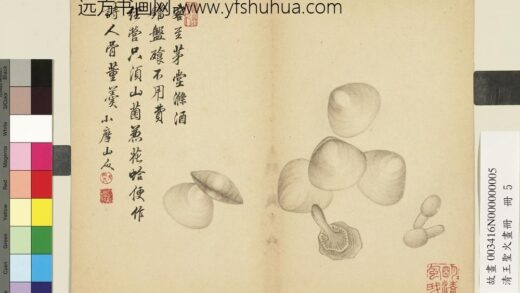 远方书画网 www.yfshuhua.com
客至茅堂滌酒
鎗盤飧不用費
經營只須山菌兼花蛤便作
時人骨董羹 小摩山
故畫 003416N000000005
清王聖火畫冊 冊 5
Black
White
Magenta
Red
Yellow
Green
Cyan